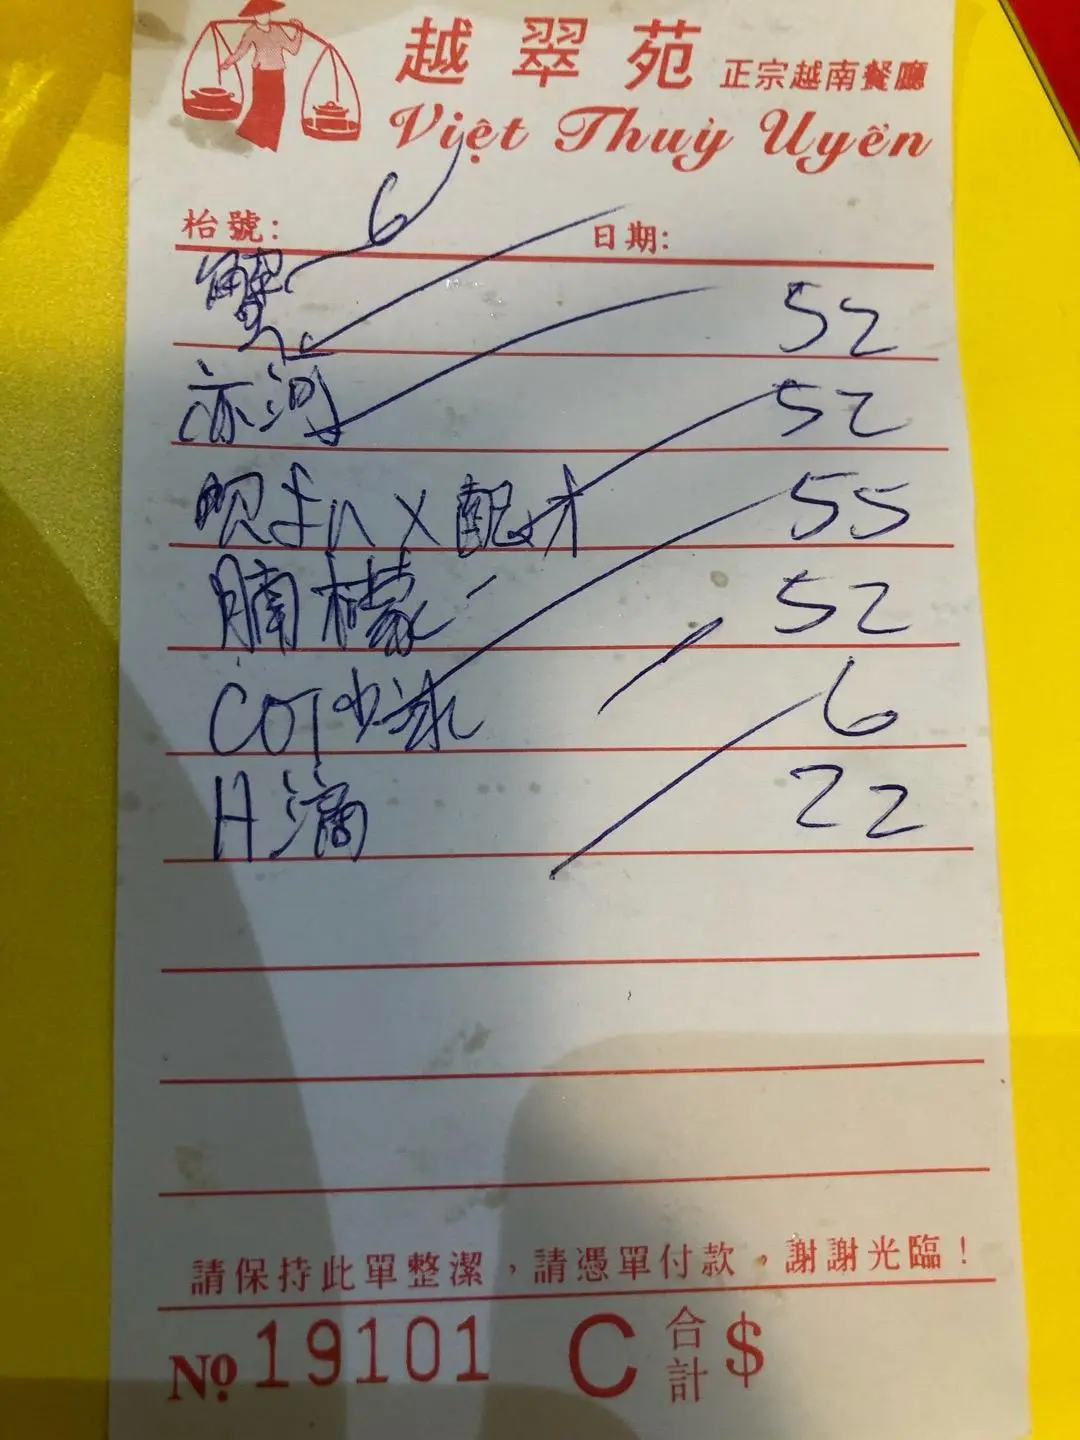 越翠苑 正宗越南餐廳
Việt Thuỷ Uyển
枱號: 6 日期:
蟹 52
河 52
X 配 55
腩檬 52
COT 少 6
H 22
請保持此單整潔，請憑單付款，謝謝光臨！
Nọ 19101 C 合計 $